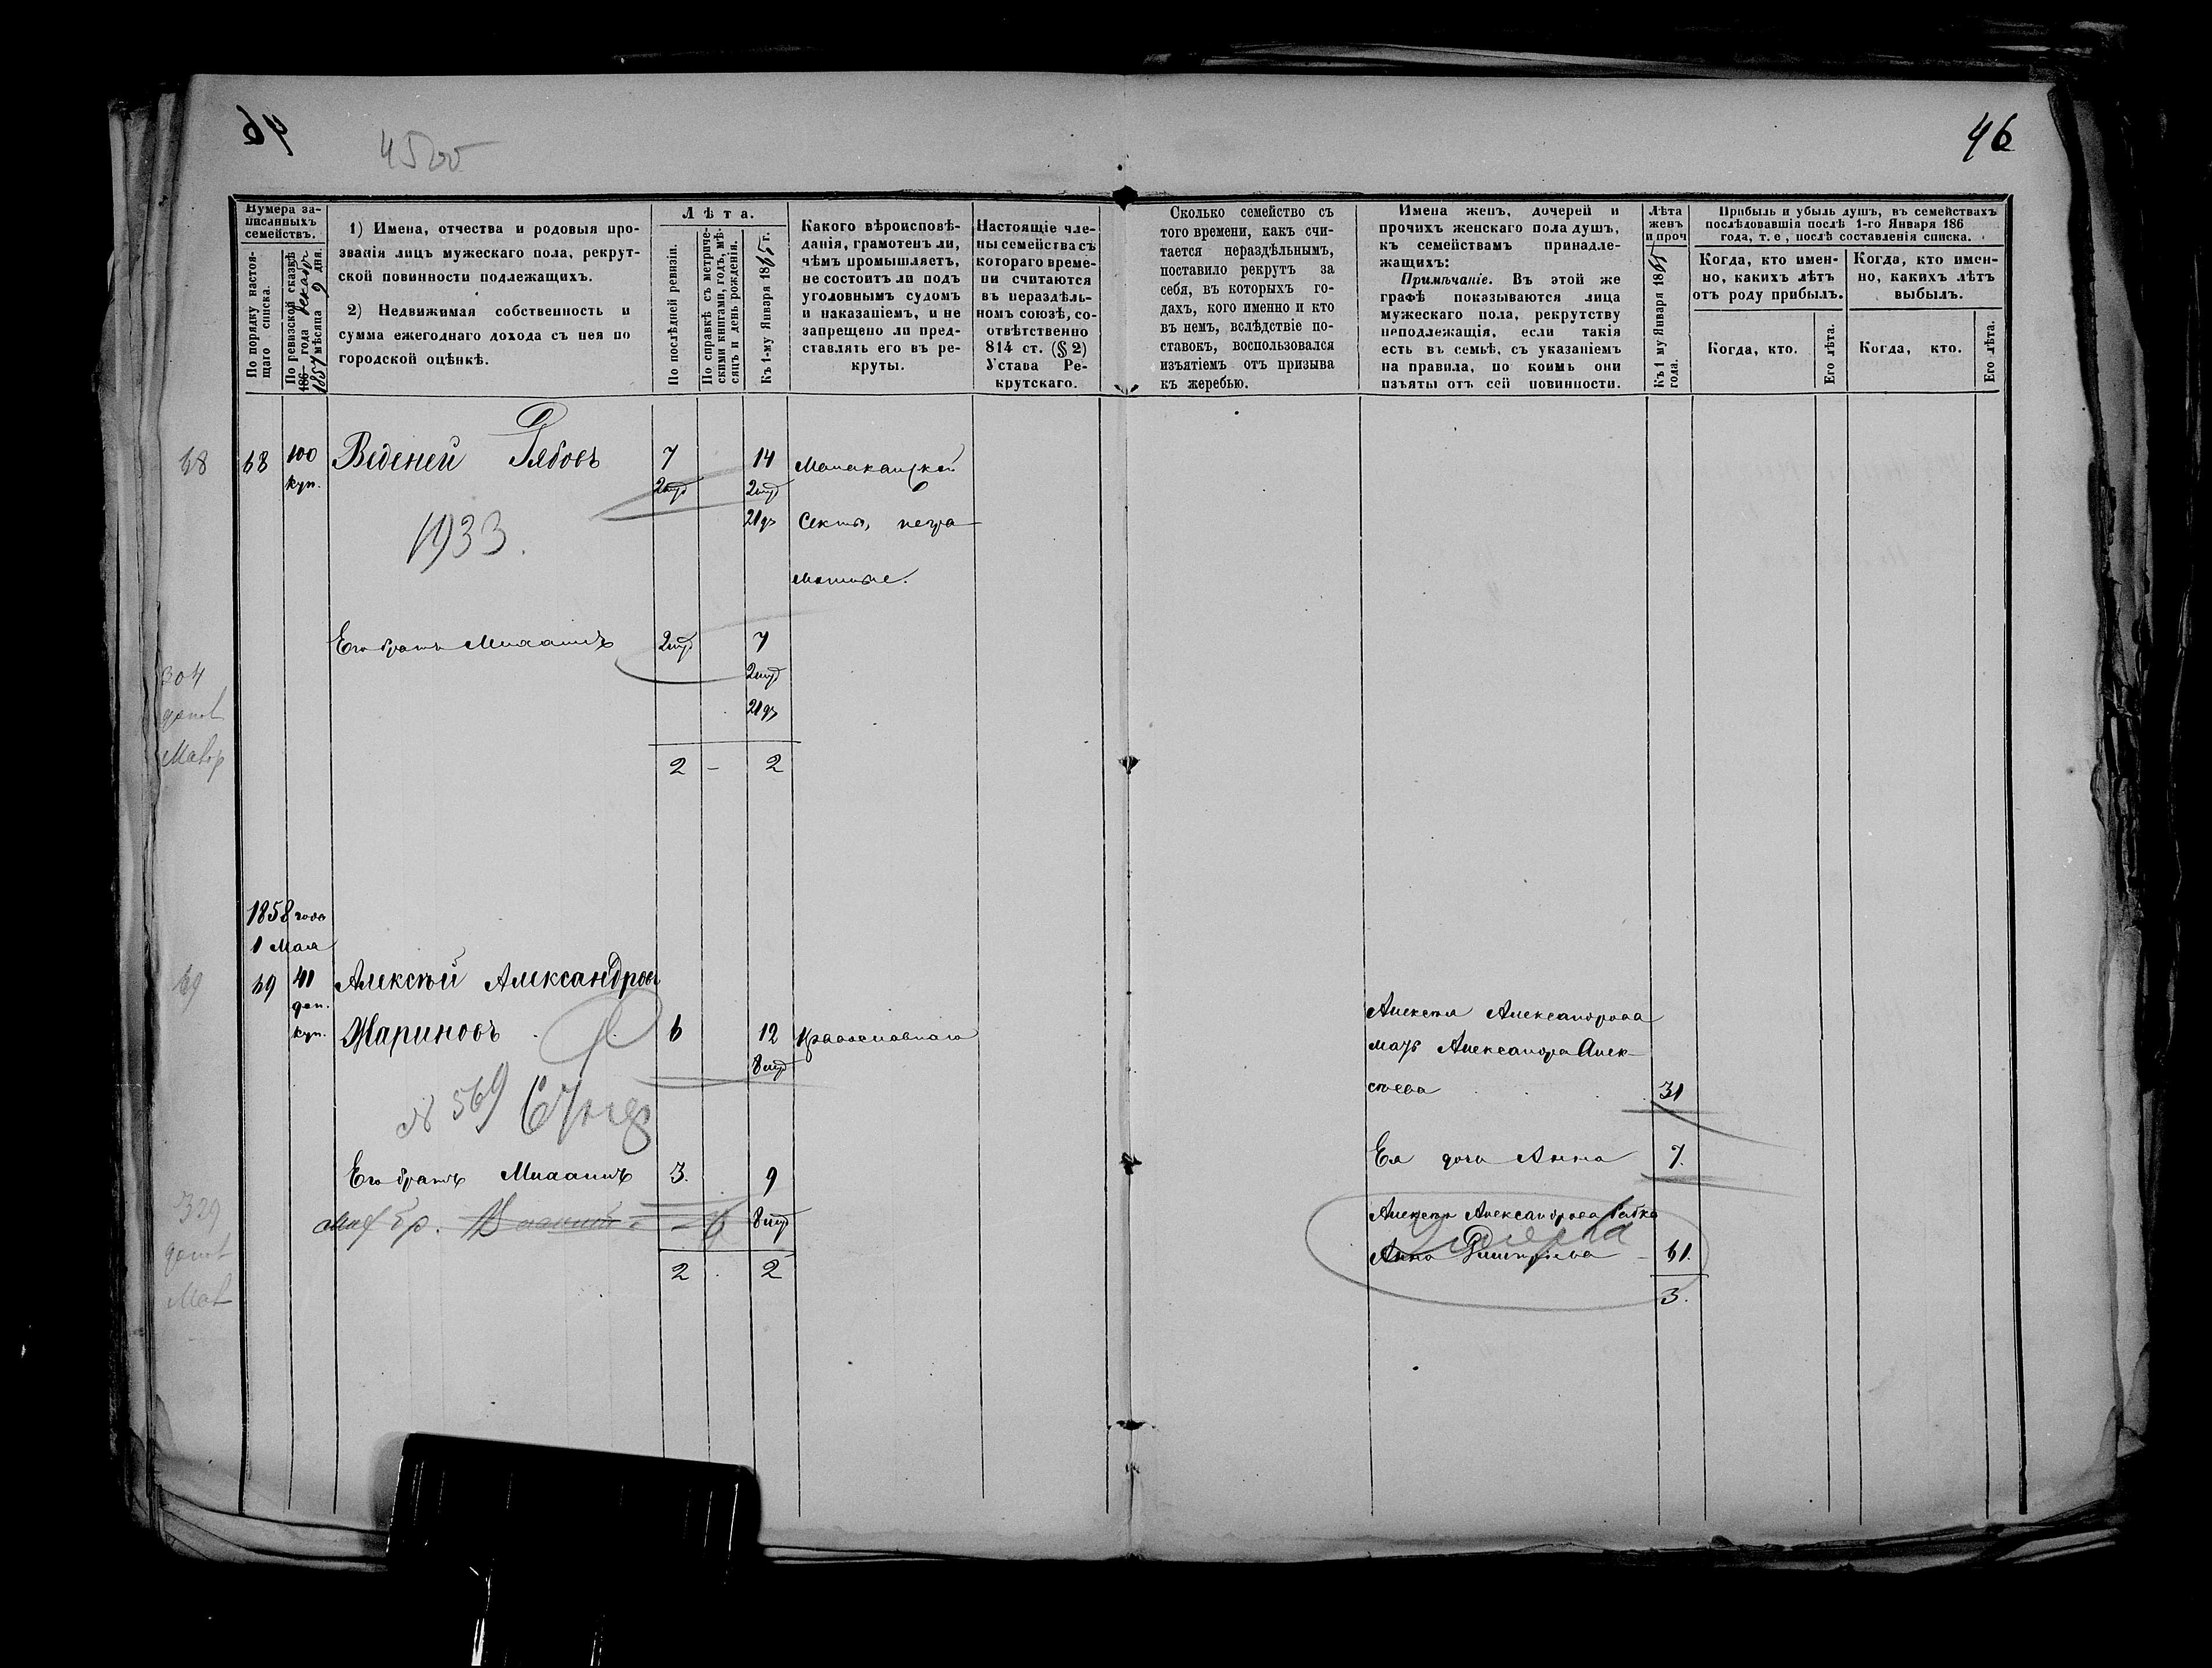 46
4500
46
Нумера за-
писанныхъ
семействъ.
По порядку настоя-
щаго списка.
По ревизской сказкѣ
186 года декабр
1857 мѣсяца 9 дня.
1) Имена, отчества и родовыя про-
званія лицъ мужескаго пола, рекрут-
ской повинности подлежащихъ.
2) Недвижимая собственность и
сумма ежегоднаго дохода съ нея по
городской оцѣнкѣ.
Лѣта.
По послѣдней ревизіи.
По справкѣ съ метриче-
скими книгами, годъ, мѣ-
сяцъ и день рожденія.
Къ 1-му Января 1865 г.
Какого вѣроисповѣ-
данія, грамотенъ ли,
чѣмъ промышляетъ,
не состоитъ ли подъ
уголовнымъ судомъ
и наказаніемъ, и не
запрещено ли пред-
ставлять его въ ре-
круты.
Настоящіе чле-
ны семейства съ
котораго време-
ни считаются
въ нераздѣль-
номъ союзѣ, со-
отвѣтственно
814 ст. (§ 2)
Устава Ре-
крутскаго.
Сколько семейство съ
того времени, какъ счи-
тается нераздѣльнымъ,
поставило рекрутъ за
себя, въ которыхъ го-
дахъ, кого именно и кто
въ немъ, вслѣдствіе по-
ставокъ, воспользовался
изъятіемъ отъ призыва
къ жеребью.
Имена женъ, дочерей и
прочихъ женскаго пола душъ,
къ семействамъ принадле-
жащихъ:
Примѣчаніе. Въ этой же
графѣ показываются лица
мужескаго пола, рекрутству
неподлежащія, если такія
есть въ семьѣ, съ указаніемъ
на правила, по коимъ они
изъяты отъ сей повинности.
Лѣта
женъ
и проч
Къ 1 му Января 1865
года.
Прибыль и убыль душъ, въ семействахъ
послѣдовавшія послѣ 1-го Января 186
года, т. е, послѣ составленія списка.
Когда, кто имен-
но, какихъ лѣтъ
отъ роду прибылъ.
Когда, кто имен-
но, какихъ лѣтъ
выбылъ.
Когда, кто.
Его лѣта.
Когда, кто.
Его лѣта.
68 68 100 Веденей Рябовъ 7 14 Молоканской
куп. 2 мѣс 2 мѣс
21 дн секты, негра-
1933.
мотные.
Его братъ Михаилъ 2 мѣс 7
304 2 мѣс
21 дн
2 - 2
1858 года
1 Мая
69 69 41 Алексѣй Александровъ
куп. Жариновъ 6 12 Православнаго
8 мѣс
№ 569
Его братъ Михаилъ 3. 9
329 8 мѣс
2 2
Алексѣя Александрова
мать Александра Алек-
сѣева 31
Ея дочь Анна 7.
Алексѣя Александрова бабка
Анна Дмитріева 61.
3.